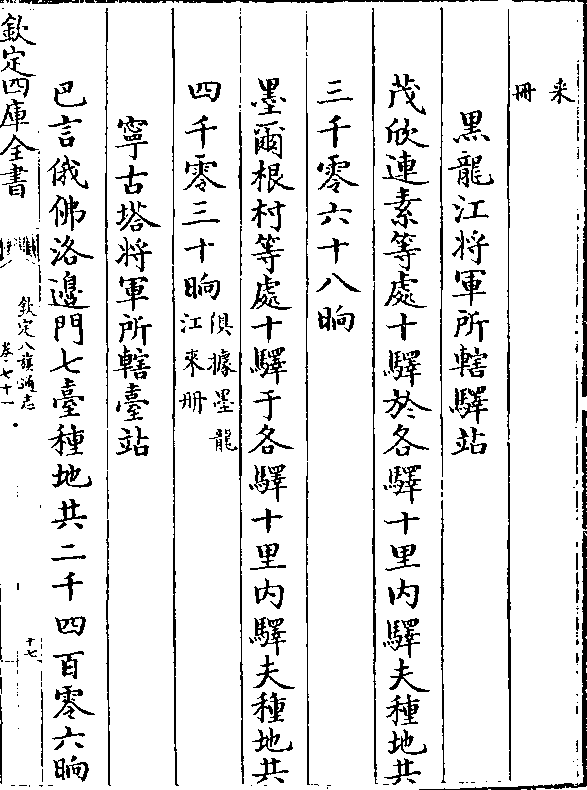 来
冊
黑龍江将軍所轄驛站
茂欣連素等處十驛於各驛十里内驛夫種地共
三千零六十八晌
墨爾根村等處十驛于各驛十里内驛夫種地共
四千零三十晌
俱據墨龍
江來冊
寧古塔将軍所轄臺站
巴言俄佛洛邊門七臺種地共二千四百零六晌
欽定四庫全書
欽定八旗通志
卷七十一
十七